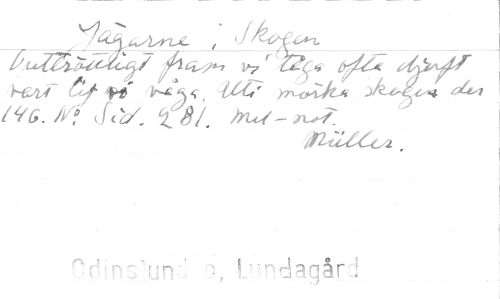 Jägarne i Skogen
Outtröttligt fram vi tåga ofta djerft
vart lif vi våga. Uti mörka skogen der
146. No Sid. 281. Mel-not.
Müller.
Odinslund o, Lundagård